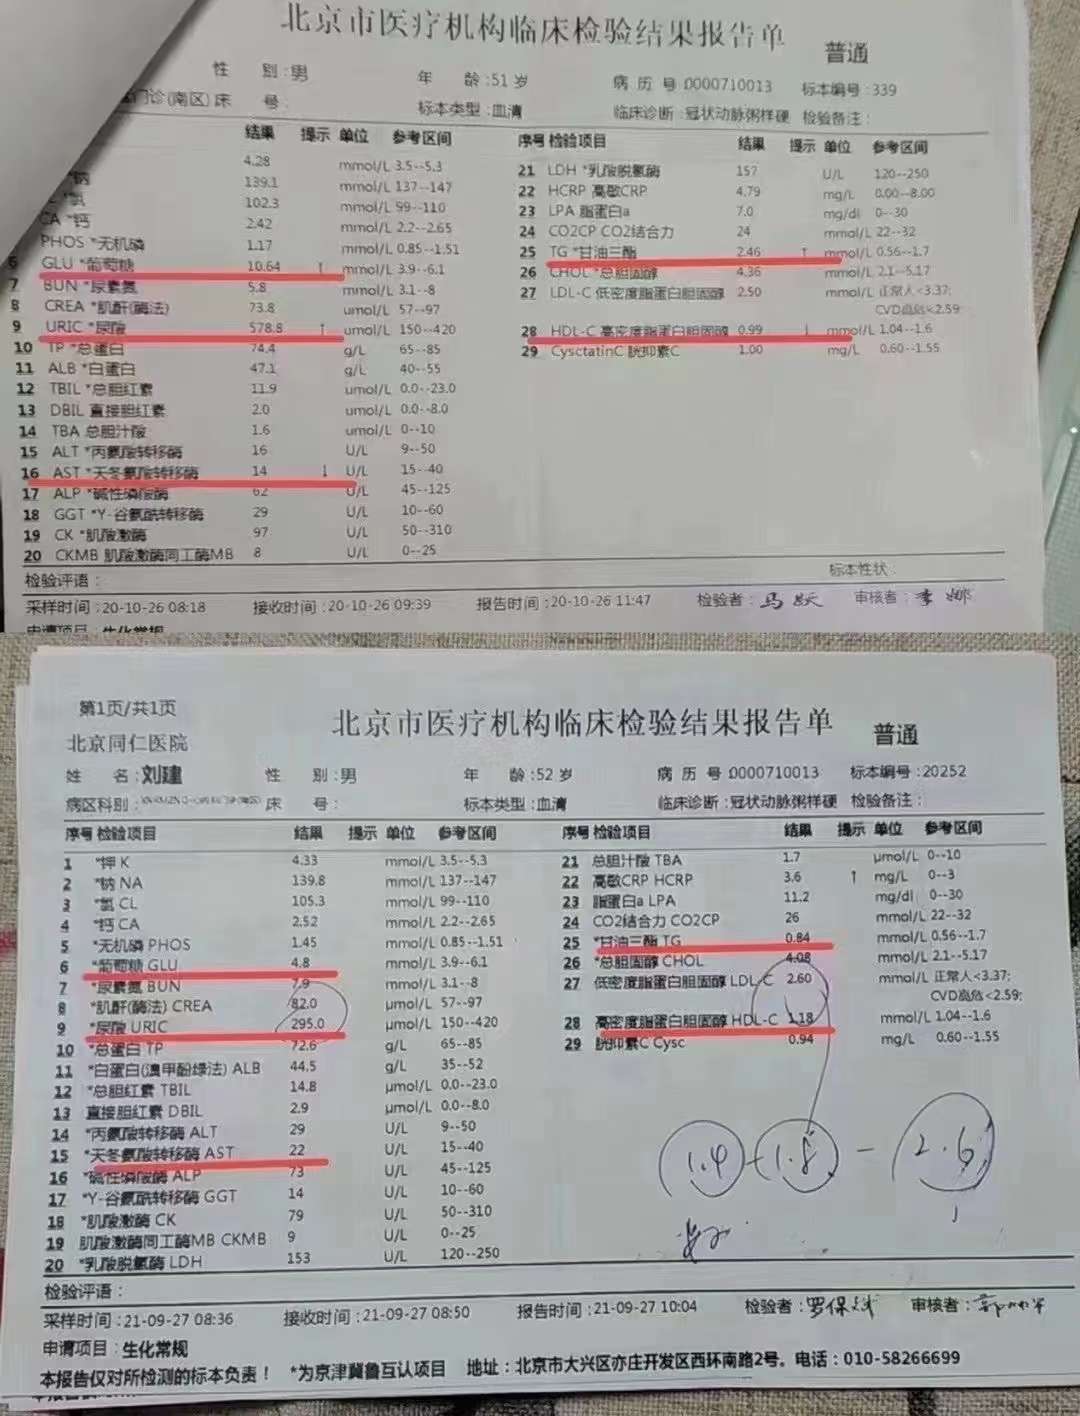 北京市医疗机构临床检验结果报告单 普通
性 别:男 年 龄:51 岁 病 历 号:0000710013 标本编号:339
门诊(南区) 床 号: 标本类型:血清 临床诊断:冠状动脉粥样硬 检验备注:
结果 提示 单位 参考区间 序号 检验项目 结果 提示 单位 参考区间
4.28 mmol/L 3.5--5.3
*钠 139.1 mmol/L 137--147
*氯 102.3 mmol/L 99--110
CA *钙 2.42 mmol/L 2.2--2.65
PHOS *无机磷 1.17 mmol/L 0.85--1.51
6 GLU *葡萄糖 10.64 ↑ mmol/L 3.9--6.1
7 BUN *尿素氮 5.8 mmol/L 3.1--8
8 CREA *肌酐(酶法) 73.8 umol/L 57--97
9 URIC *尿酸 578.8 ↑ umol/L 150--420
10 TP *总蛋白 74.4 g/L 65--85
11 ALB *白蛋白 47.1 g/L 40--55
12 TBIL *总胆红素 11.9 umol/L 0.0--23.0
13 DBIL 直接胆红素 2.0 umol/L 0.0--8.0
14 TBA 总胆汁酸 1.6 umol/L 0--10
15 ALT *丙氨酸转移酶 16 U/L 9--50
16 AST *天冬氨酸转移酶 14 ↓ U/L 15--40
17 ALP *碱性磷酸酶 62 U/L 45--125
18 GGT *Y-谷氨酰转移酶 29 U/L 10--60
19 CK *肌酸激酶 97 U/L 50--310
20 CKMB 肌酸激酶同工酶MB 8 U/L 0--25
21 LDH *乳酸脱氢酶 157 U/L 120--250
22 HCRP 高敏CRP 4.79 mg/L 0.00--8.00
23 LPA 脂蛋白a 7.0 mg/dl 0--30
24 CO2CP CO2结合力 24 mmol/L 22--32
25 TG *甘油三酯 2.46 ↑ mmol/L 0.56--1.7
26 CHOL *总胆固醇 4.36 mmol/L 2.1--5.17
27 LDL-C 低密度脂蛋白胆固醇 2.50 mmol/L 正常人<3.37;
CVD高危<2.59;
28 HDL-C 高密度脂蛋白胆固醇 0.99 ↓ mmol/L 1.04--1.6
29 CysctatinC 胱抑素C 1.00 mg/L 0.60--1.55
标本性状:
检验评语:
采样时间:20-10-26 08:18 接收时间:20-10-26 09:39 报告时间:20-10-26 11:47 检验者:马跃 审核者:李娜
申请项目:生化常规
第1页/共1页
北京市医疗机构临床检验结果报告单 普通
北京同仁医院
姓 名:刘建 性 别:男 年 龄:52 岁 病 历 号:0000710013 标本编号:20252
病区科别: 床 号: 标本类型:血清 临床诊断:冠状动脉粥样硬 检验备注:
序号 检验项目 结果 提示 单位 参考区间 序号 检验项目 结果 提示 单位 参考区间
1 *钾 K 4.33 mmol/L 3.5--5.3
2 *钠 NA 139.8 mmol/L 137--147
3 *氯 CL 105.3 mmol/L 99--110
4 *钙 CA 2.52 mmol/L 2.2--2.65
5 *无机磷 PHOS 1.45 mmol/L 0.85--1.51
6 *葡萄糖 GLU 4.8 mmol/L 3.9--6.1
7 *尿素氮 BUN 7.9 mmol/L 3.1--8
8 *肌酐(酶法) CREA 82.0 μmol/L 57--97
9 *尿酸 URIC 295.0 μmol/L 150--420
10 *总蛋白 TP 72.6 g/L 65--85
11 *白蛋白(溴甲酚绿法) ALB 44.5 g/L 35--52
12 *总胆红素 TBIL 14.8 μmol/L 0.0--23.0
13 直接胆红素 DBIL 2.9 μmol/L 0.0--8.0
14 *丙氨酸转移酶 ALT 29 U/L 9--50
15 *天冬氨酸转移酶 AST 22 U/L 15--40
16 *碱性磷酸酶 ALP 73 U/L 45--125
17 *Y-谷氨酰转移酶 GGT 14 U/L 10--60
18 *肌酸激酶 CK 79 U/L 50--310
19 肌酸激酶同工酶MB CKMB 9 U/L 0--25
20 *乳酸脱氢酶 LDH 153 U/L 120--250
21 总胆汁酸 TBA 1.7 μmol/L 0--10
22 高敏CRP HCRP 3.6 ↑ mg/L 0--3
23 脂蛋白a LPA 11.2 mg/dl 0--30
24 CO2结合力 CO2CP 26 mmol/L 22--32
25 *甘油三酯 TG 0.84 mmol/L 0.56--1.7
26 *总胆固醇 CHOL 4.08 mmol/L 2.1--5.17
27 低密度脂蛋白胆固醇 LDL-C 2.60 mmol/L 正常人<3.37;
CVD高危<2.59;
28 高密度脂蛋白胆固醇 HDL-C 1.18 mmol/L 1.04--1.6
29 胱抑素C Cysc 0.94 mg/L 0.60--1.55
1.4 - 1.8 - 2.6
检验评语:
采样时间:21-09-27 08:36 接收时间:21-09-27 08:50 报告时间:21-09-27 10:04 检验者:罗保 审核者:
申请项目:生化常规
本报告仅对所检测的标本负责! *为京津冀鲁互认项目 地址:北京市大兴区亦庄开发区西环南路2号。电话:010-58266699